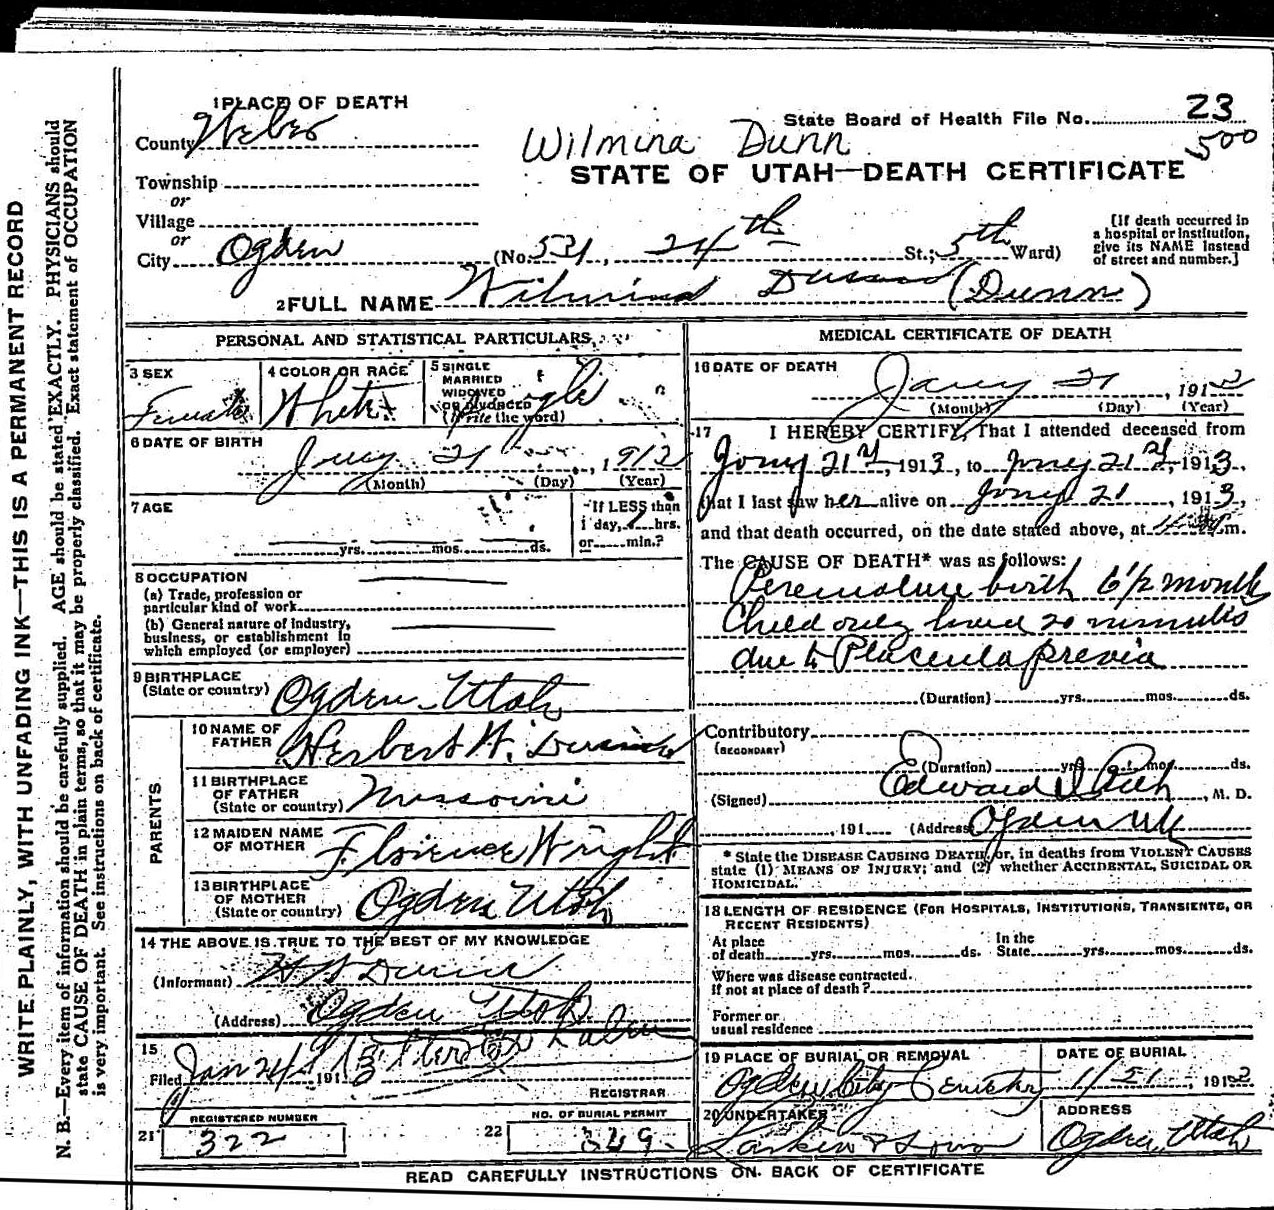 1 PLACE OF DEATH
State Board of Health File No. 23
500
County Weber
Wilmina Dunn
STATE OF UTAH—DEATH CERTIFICATE
Township
or
Village
or
City Ogden (No. 531, 24th St.; 5th Ward)
[If death occurred in
a hospital or institution,
give its NAME instead
of street and number.]
2 FULL NAME Wilmina (Dunn)
PERSONAL AND STATISTICAL PARTICULARS
3 SEX
Female
4 COLOR OR RACE
White
5 SINGLE
MARRIED
WIDOWED
OR DIVORCED
(Write the word)
Single
6 DATE OF BIRTH
Jany 21 , 191
(Month) (Day) (Year)
7 AGE
yrs. mos. ds.
If LESS than
1 day, hrs.
or min.?
8 OCCUPATION
(a) Trade, profession or
particular kind of work
(b) General nature of industry,
business, or establishment in
which employed (or employer)
9 BIRTHPLACE
(State or country) Ogden Utah
PARENTS
10 NAME OF
FATHER Herbert W.
11 BIRTHPLACE
OF FATHER
(State or country) Missouri
12 MAIDEN NAME
OF MOTHER Florence Wright
13 BIRTHPLACE
OF MOTHER
(State or country) Ogden Utah
14 THE ABOVE IS TRUE TO THE BEST OF MY KNOWLEDGE
(Informant)
(Address) Ogden Utah
15
Filed Jan 24 1913
REGISTRAR
REGISTERED NUMBER
21 322
NO. OF BURIAL PERMIT
22 349
MEDICAL CERTIFICATE OF DEATH
16 DATE OF DEATH
Jany 21 , 191
(Month) (Day) (Year)
17 I HEREBY CERTIFY, That I attended deceased from
Jany 21st, 1913, to Jany 21st, 1913,
that I last saw her alive on Jany 21, 1913,
and that death occurred, on the date stated above, at m.
The CAUSE OF DEATH* was as follows:
Peremature birth 6 1/2 month
Child only lived 20 minutes
due to Placenta previa
(Duration) yrs. mos. ds.
Contributory
(SECONDARY)
(Duration) yrs. mos. ds.
(Signed) Edward I Rich, M. D.
, 191 (Address) Ogden Ut
* State the DISEASE CAUSING DEATH, or, in deaths from VIOLENT CAUSES
state (1) MEANS OF INJURY; and (2) whether ACCIDENTAL, SUICIDAL OR
HOMICIDAL.
18 LENGTH OF RESIDENCE (FOR HOSPITALS, INSTITUTIONS, TRANSIENTS, OR
RECENT RESIDENTS)
At place
of death yrs. mos. ds.
In the
State yrs. mos. ds.
Where was disease contracted.
If not at place of death?
Former or
usual residence
19 PLACE OF BURIAL OR REMOVAL
Ogden City Cemetery
DATE OF BURIAL
1/21, 191
20 UNDERTAKER
Larkin & Sons
ADDRESS
Ogden, Utah
READ CAREFULLY INSTRUCTIONS ON BACK OF CERTIFICATE
WRITE PLAINLY, WITH UNFADING INK—THIS IS A PERMANENT RECORD
N. B.—Every item of information should be carefully supplied. AGE should be stated EXACTLY. PHYSICIANS should
state CAUSE OF DEATH in plain terms, so that it may be properly classified. Exact statement of OCCUPATION
is very important. See instructions on back of certificate.